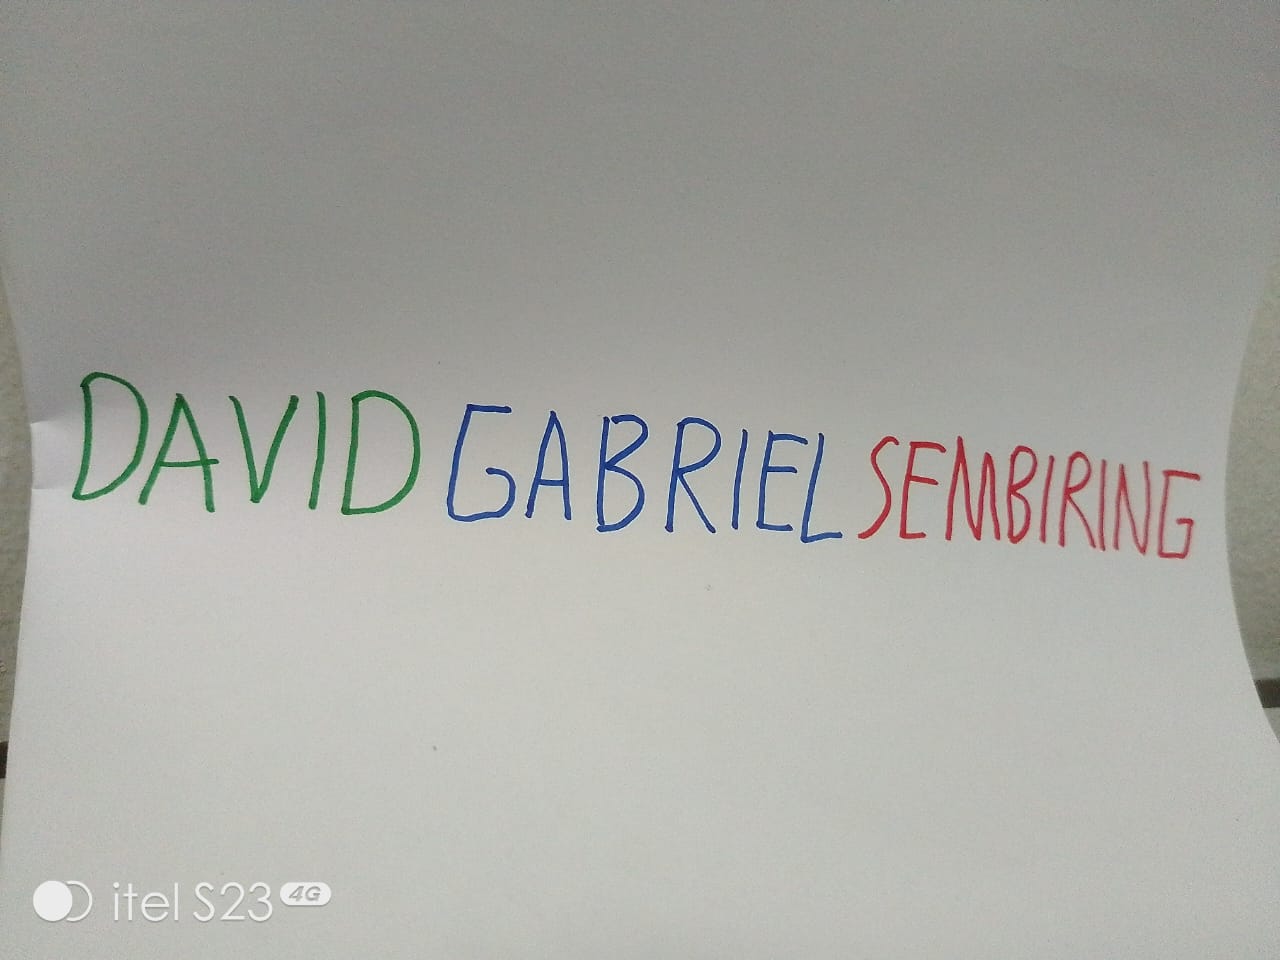 DAVID GABRIEL SEMBIRING
itel S23 4G